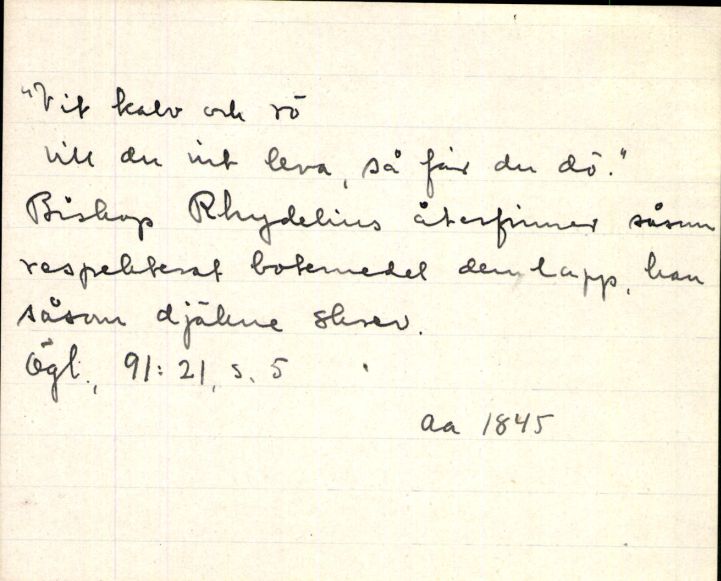 "Vit kalv och rö
vill du int leva, så får du dö."
Biskop Rhydelius återfinner såsom
respekterat botemedel den lapp, han
såsom djäkne skrev.
Ögl., 91:21, s. 5
aa 1845